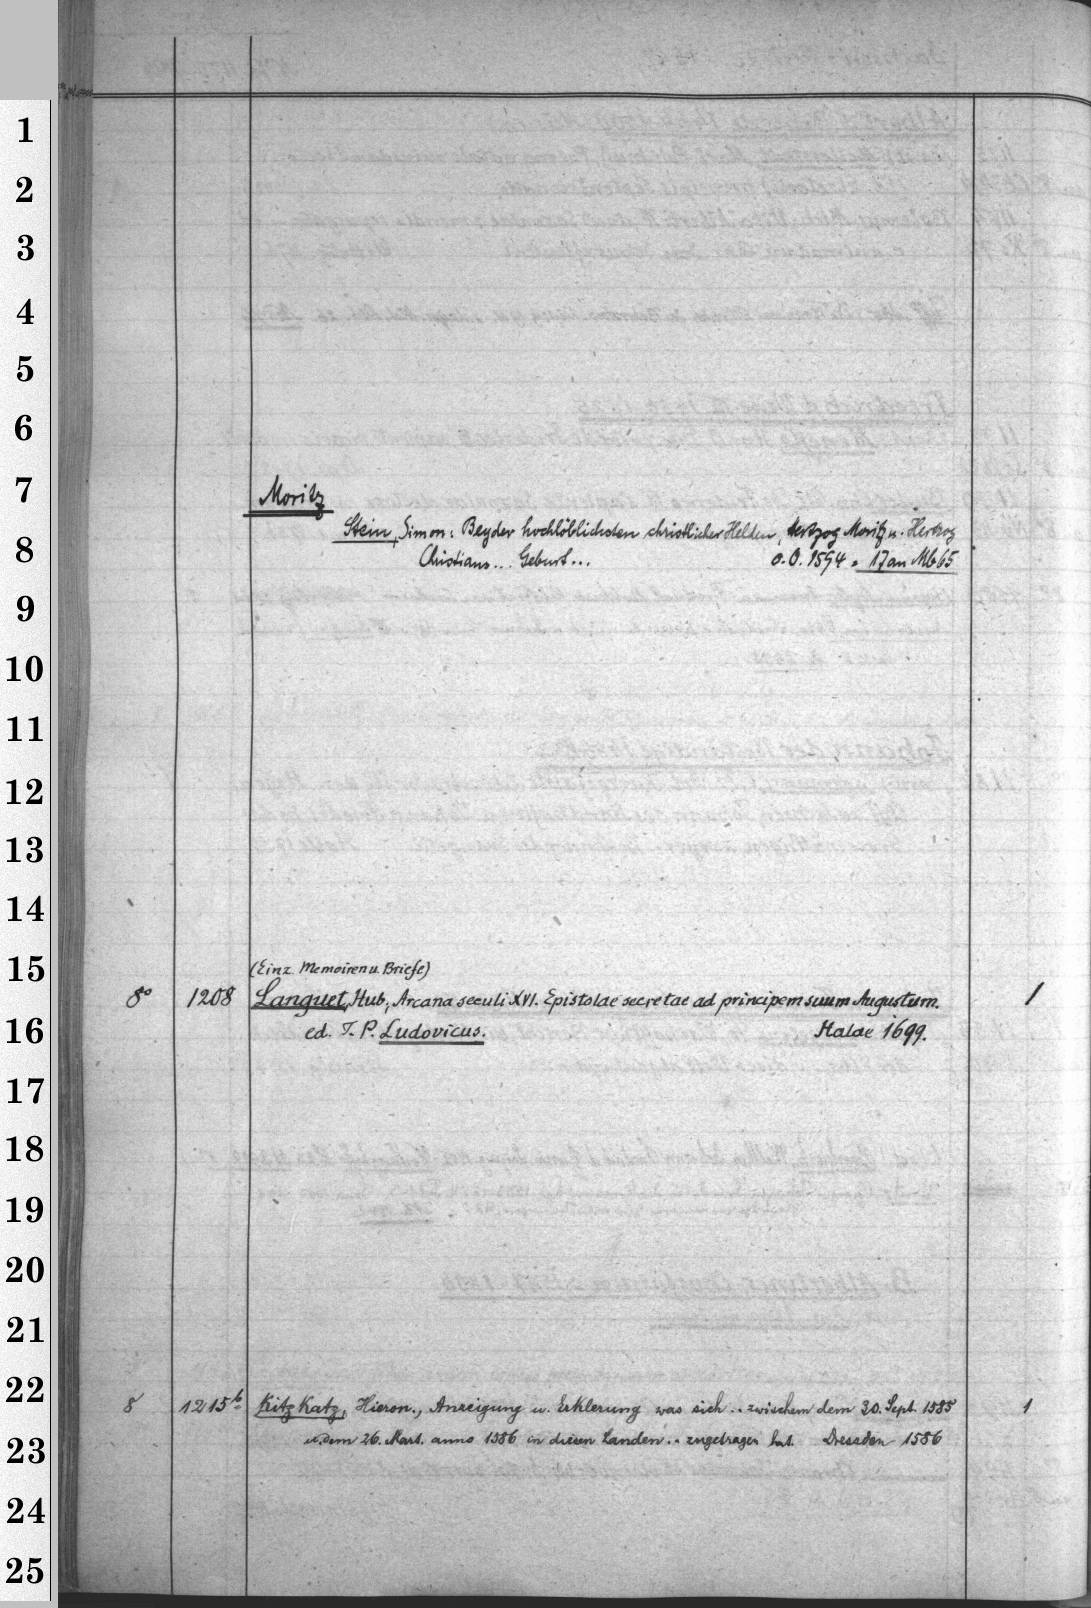 1
2
3
4
5
6
7
Moritz
Stein, Simon: Beyder hochlöblichsten christlicher Helden, Hertzog Moritz u. Hertzog
8
Christians... Geburt... o.O. 1594 = 17 an Mb 65
9
10
11
12
13
14
15
(Einz. Memoiren u. Briefe)
8° 1208 Languet, Hub., Arcana seculi XVI. Epistolae secretae ad principem suum Augustum. 1
16
ed. T. P. Ludovicus. Halae 1699.
17
18
19
20
21
22
8 1215b Kitzkatz, Hieron., Anzeigung u. Erklerung was sich .. zwischem dem 30. Sept. 1585 1
23
u. dem 26. Mart. anno 1586 in diesen Landen .. zugetragen hat. Dressden 1586
24
25